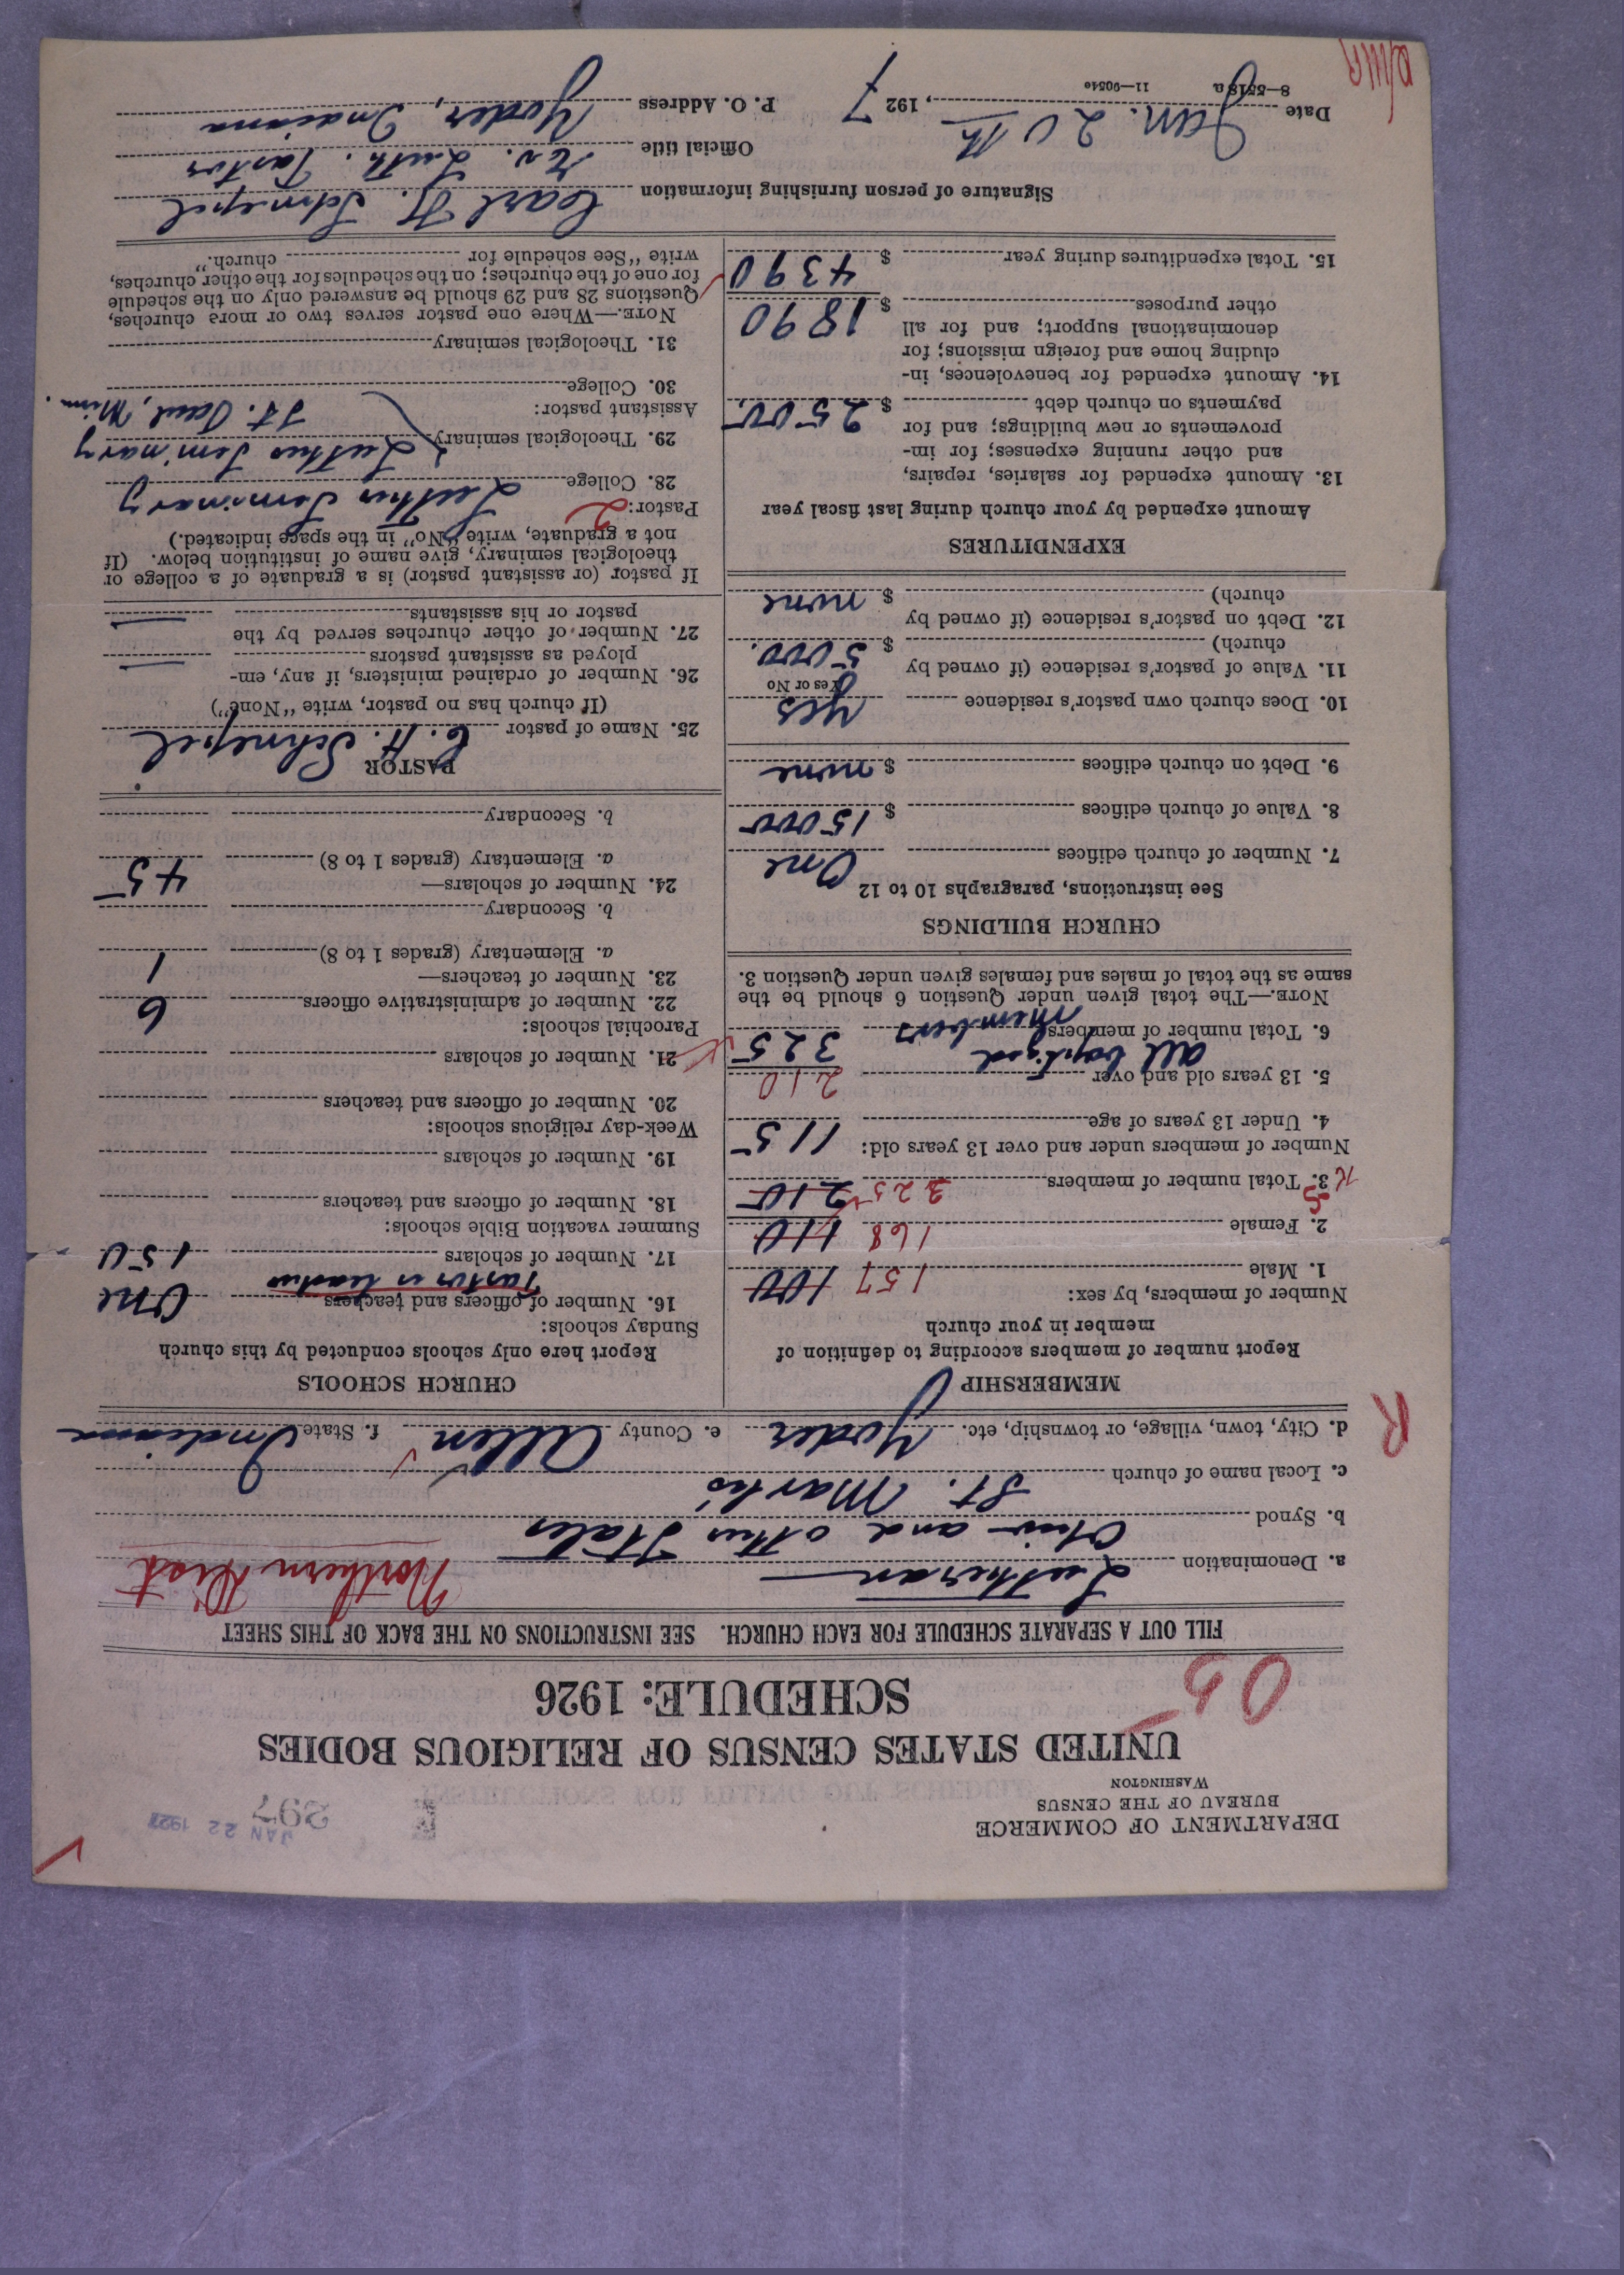 DEPARTMENT OF COMMERCE
BUREAU OF THE CENSUS
WASHINGTON
297
JAN 22 1927
UNITED STATES CENSUS OF RELIGIOUS BODIES
SCHEDULE: 1926
05
FILL OUT A SEPARATE SCHEDULE FOR EACH CHURCH. SEE INSTRUCTIONS ON THE BACK OF THIS SHEET
a. Denomination Lutheran Northern Dist
b. Synod Ohio and other States
c. Local name of church St. Mark's
d. City, town, village, or township, etc. Yoder e. County Allen f. State Indiana
R
MEMBERSHIP
Report number of members according to definition of
member in your church
Number of members, by sex:
1. Male 157 100
2. Female 168 110
3. Total number of members 325 210
Number of members under and over 13 years old:
4. Under 13 years of age 115
5. 13 years old and over 210
all baptized
6. Total number of members members 325
NOTE.—The total given under Question 6 should be the
same as the total of males and females given under Question 3.
CHURCH BUILDINGS
See instructions, paragraphs 10 to 12
7. Number of church edifices One
8. Value of church edifices $ 15000
9. Debt on church edifices $ none
10. Does church own pastor's residence yes
Yes or No
11. Value of pastor's residence (if owned by
church) $ 5000.
12. Debt on pastor's residence (if owned by
church) $ none
EXPENDITURES
Amount expended by your church during last fiscal year
13. Amount expended for salaries, repairs,
and other running expenses; for im-
provements or new buildings; and for
payments on church debt $ 2500.
14. Amount expended for benevolences, in-
cluding home and foreign missions; for
denominational support; and for all
other purposes $ 1890
15. Total expenditures during year $ 4390
CHURCH SCHOOLS
Report here only schools conducted by this church
Sunday schools:
16. Number of officers and teachers One
Pastor is teacher
17. Number of scholars 150
Summer vacation Bible schools:
18. Number of officers and teachers
19. Number of scholars
Week-day religious schools:
20. Number of officers and teachers
21. Number of scholars
Parochial schools:
22. Number of administrative officers 6
23. Number of teachers—
a. Elementary (grades 1 to 8) 1
b. Secondary
24. Number of scholars—
a. Elementary (grades 1 to 8) 45
b. Secondary
PASTOR
25. Name of pastor C. H. Schnepel
(If church has no pastor, write "None")
26. Number of ordained ministers, if any, em-
ployed as assistant pastors —
27. Number of other churches served by the
pastor or his assistants —
If pastor (or assistant pastor) is a graduate of a college or
theological seminary, give name of institution below. (If
not a graduate, write "No" in the space indicated.)
Pastor: 2
28. College Luther Seminary
29. Theological seminary Luther Seminary
St. Paul, Minn.
Assistant pastor:
30. College
31. Theological seminary
NOTE.—Where one pastor serves two or more churches,
Questions 28 and 29 should be answered only on the schedule
for one of the churches; on the schedules for the other churches,
write "See schedule for church."
Signature of person furnishing information Carl H. Schnepel
Official title Ev. Luth. Pastor
Date Jan. 20th, 1927 P. O. Address Yoder, Indiana
8—5518a 11—9054